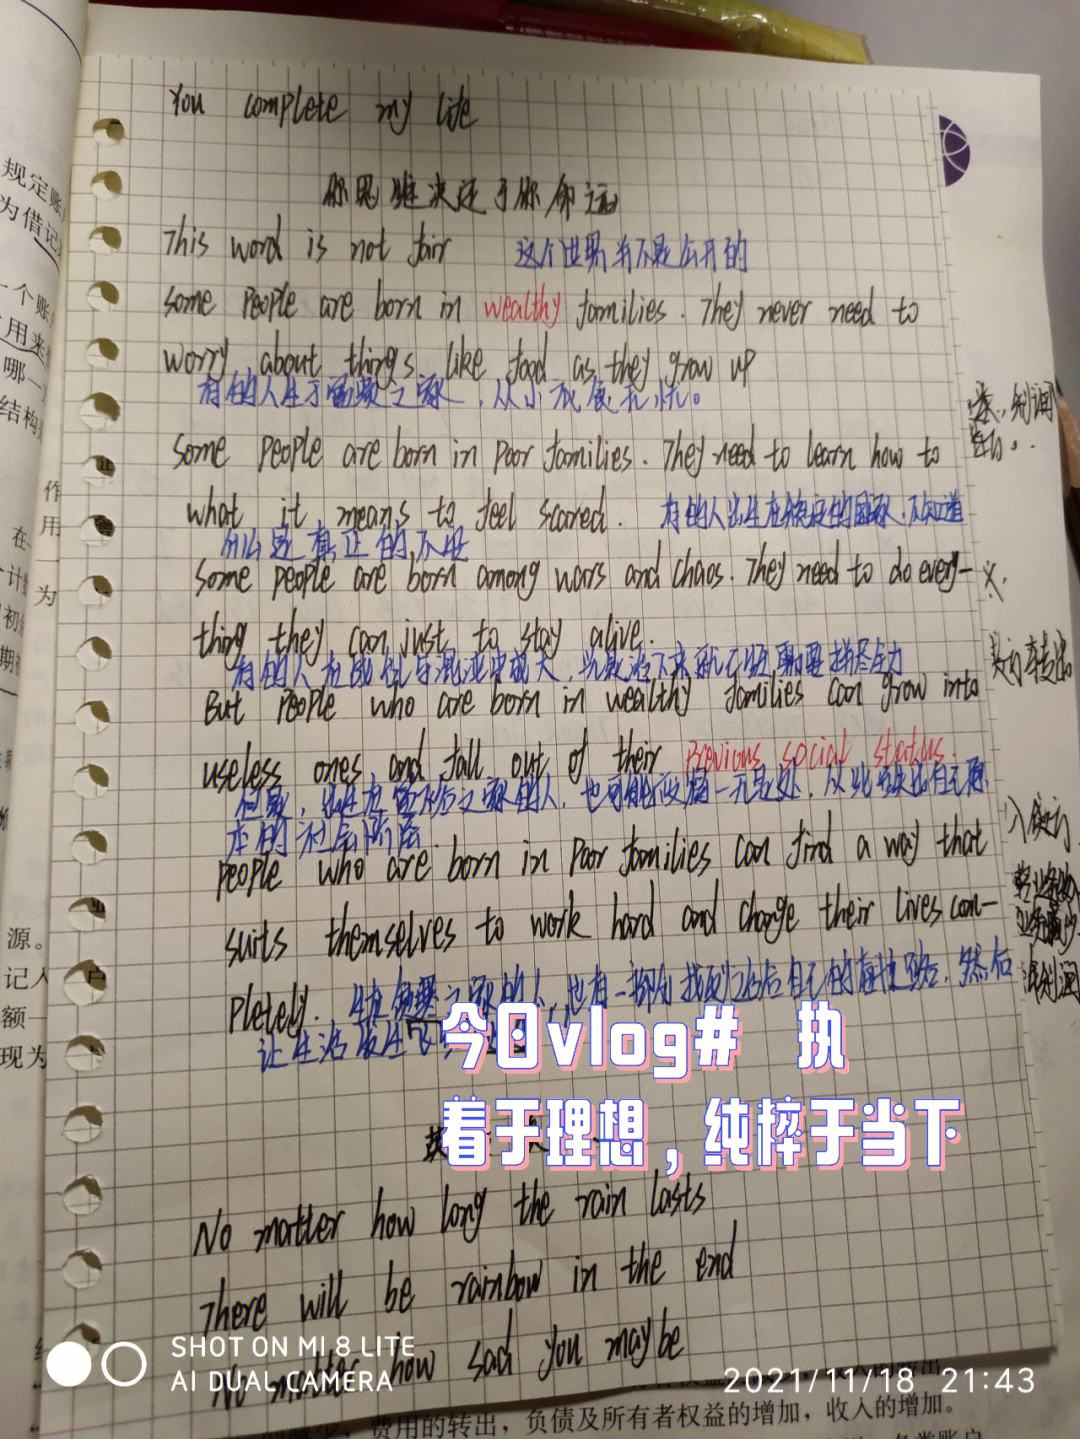 You complete my life
你思维决定于你命运
This word is not fair 这个世界并不是公开的
Some people are born in wealthy families. They never need to
worry about things like food as they grow up
有的人生于富贵之家，从小衣食无忧。
Some people are born in poor families. They need to learn how to
what it means to feel scared. 有的人出生在稳定的国家，不知道
什么是真正的不安
Some people are born among wars and chaos. They need to do every-
thing they can just to stay alive.
有的人在战乱与混沌中成大，光是活下来就已经需要拼尽全力
But people who are born in wealthy families can grow into
useless ones and fall out of their previous social status.
但是，出生在富裕之家的人，也可能改得一无是处，从此跌出自己原
本的社会阶层.
People who are born in poor families can find a way that
suits themselves to work hard and change their lives com-
pletely. 生在之家的人，也有一部分找到之后自己的奋斗之路，然后
让生活发生飞
今日vlog# 执
着于理想，纯粹于当下
No matter how long the rain lasts
There will be rainbow in the end
No matter how sad you maybe
SHOT ON MI 8 LITE
AI DUAL CAMERA
2021/11/18 21:43
规定账
为借记
一个账
用来
哪一
结构
作
用
一
为
在
计
初
期
源。
记入
额一
现为
利润
转出
费用的转出，负债及所有者权益的增加，收入的增加。